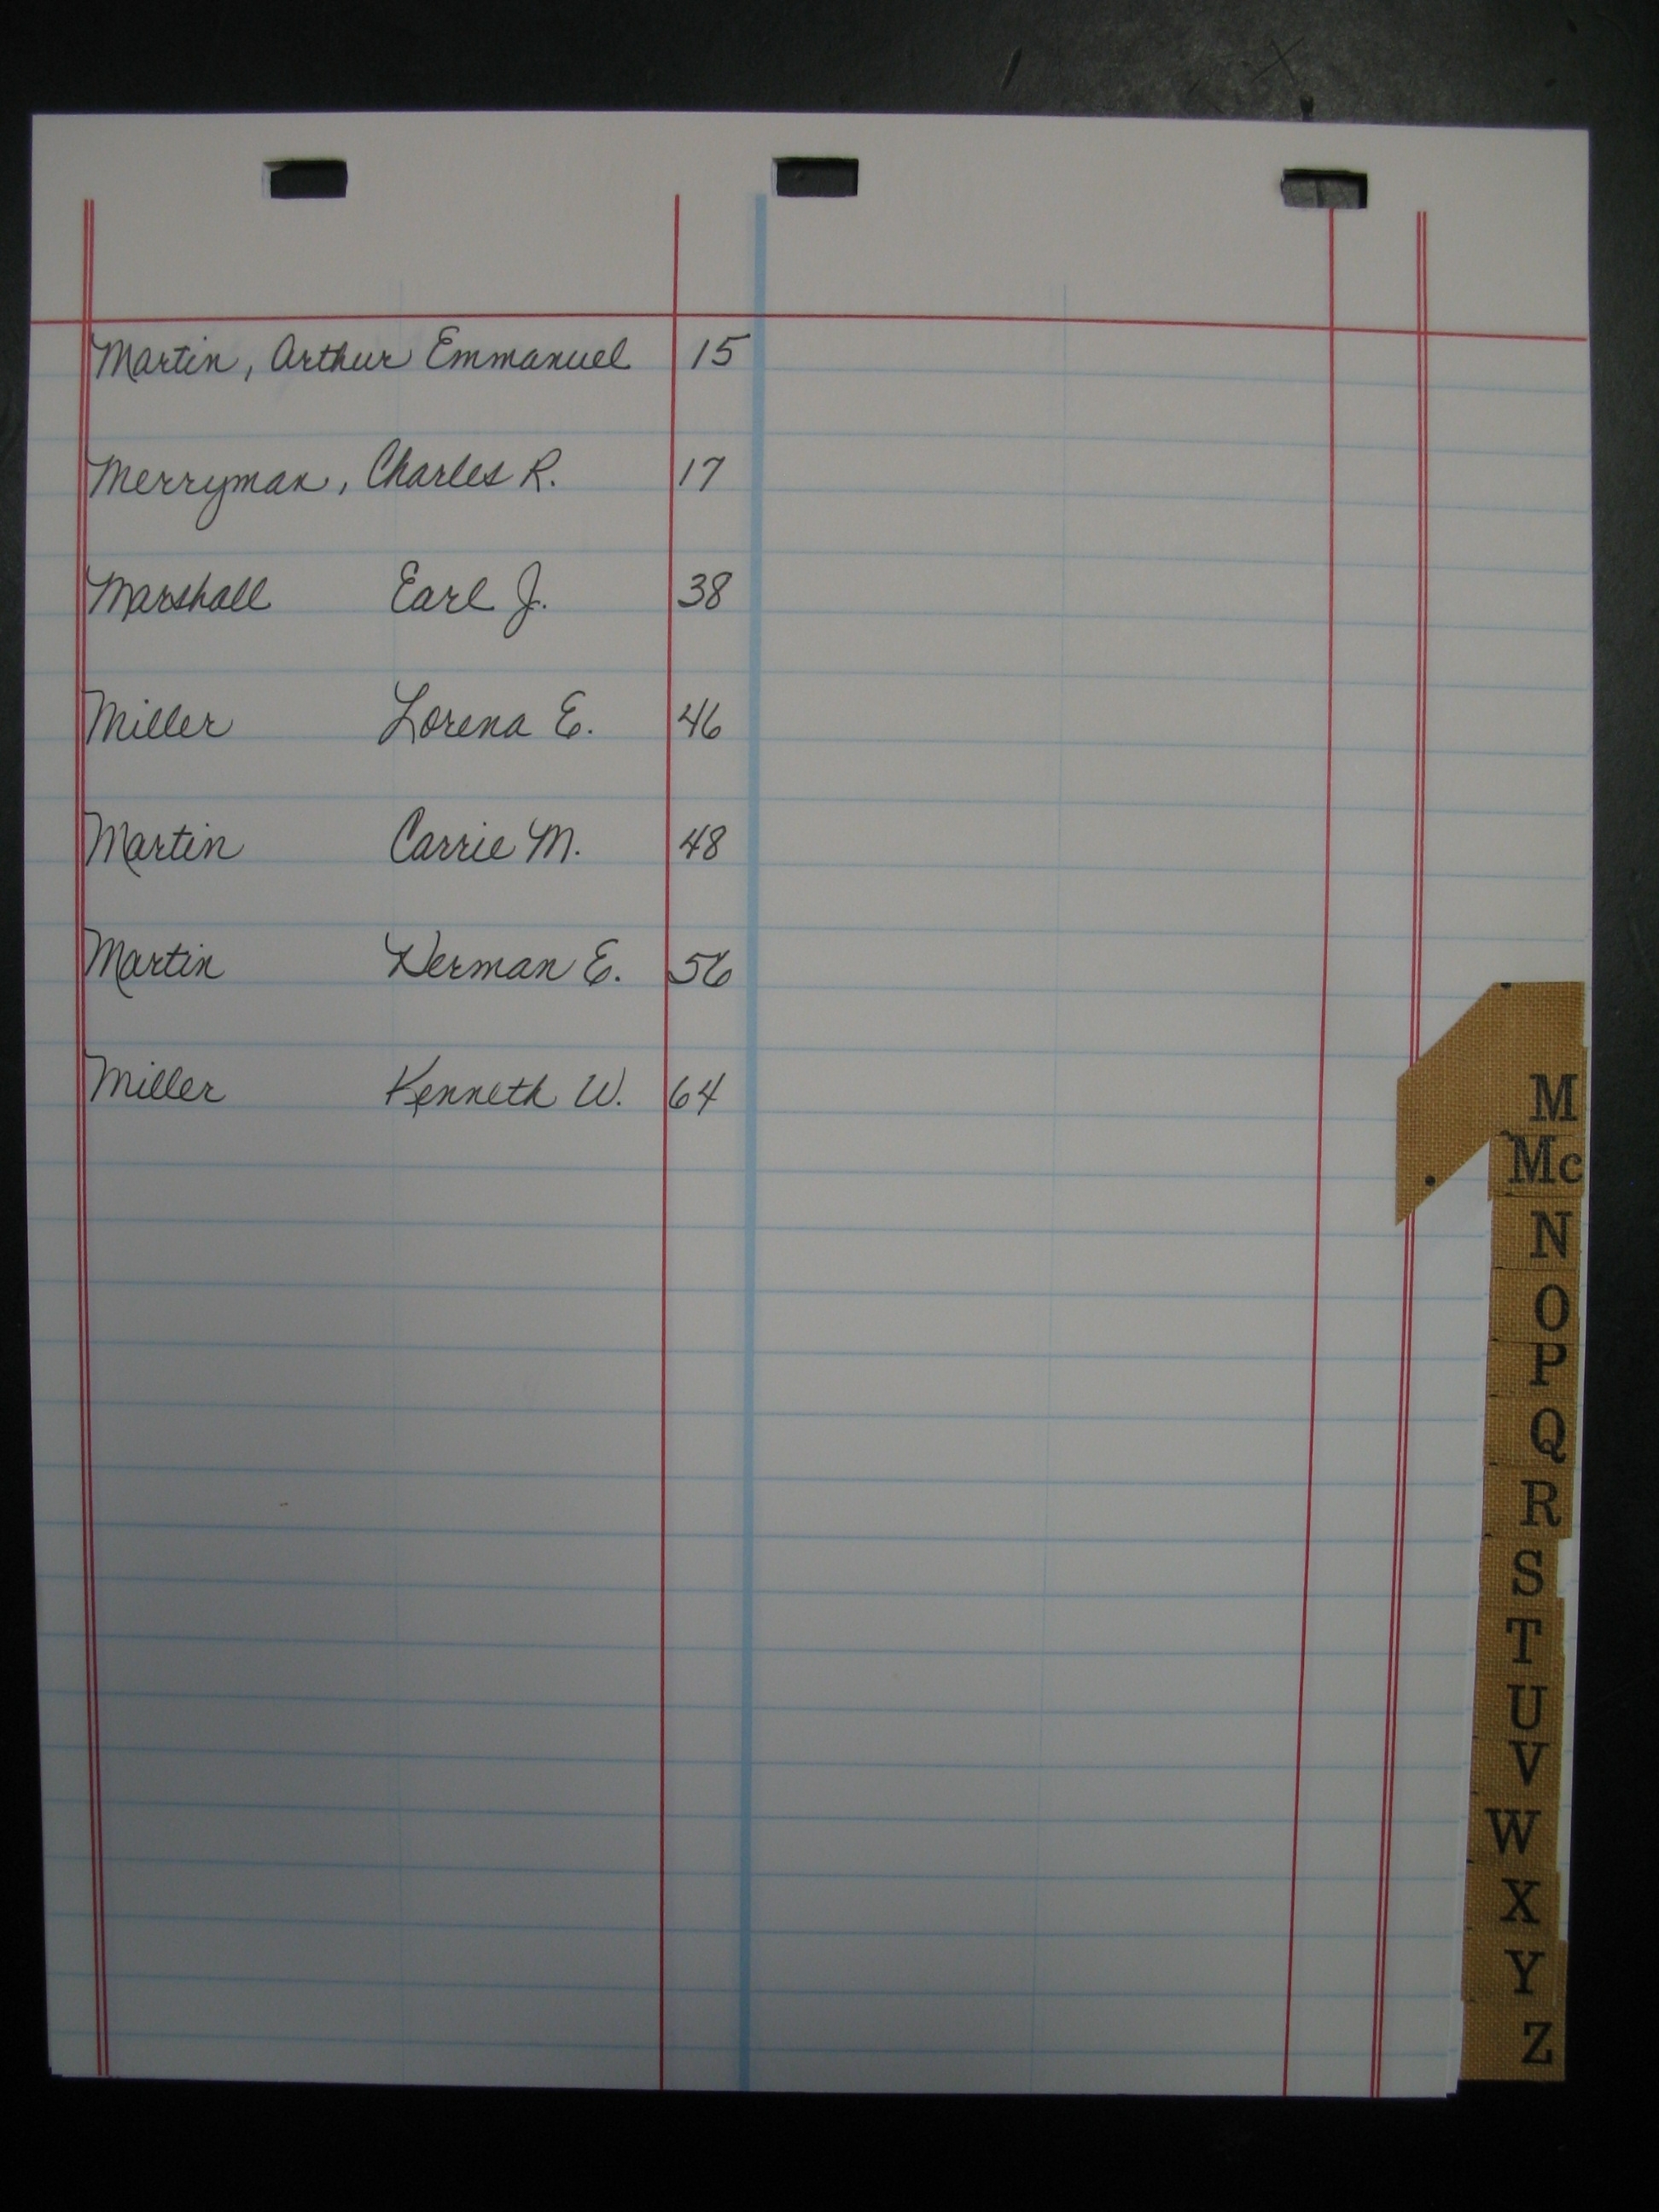 Martin, Arthur Emmanuel 15
Merryman, Charles R. 17
Marshall Earl J. 38
Miller Lorena E. 46
Martin Carrie M. 48
Martin Herman E. 56
Miller Kenneth W. 64
M
Mc
N
O
P
Q
R
S
T
U
V
W
X
Y
Z